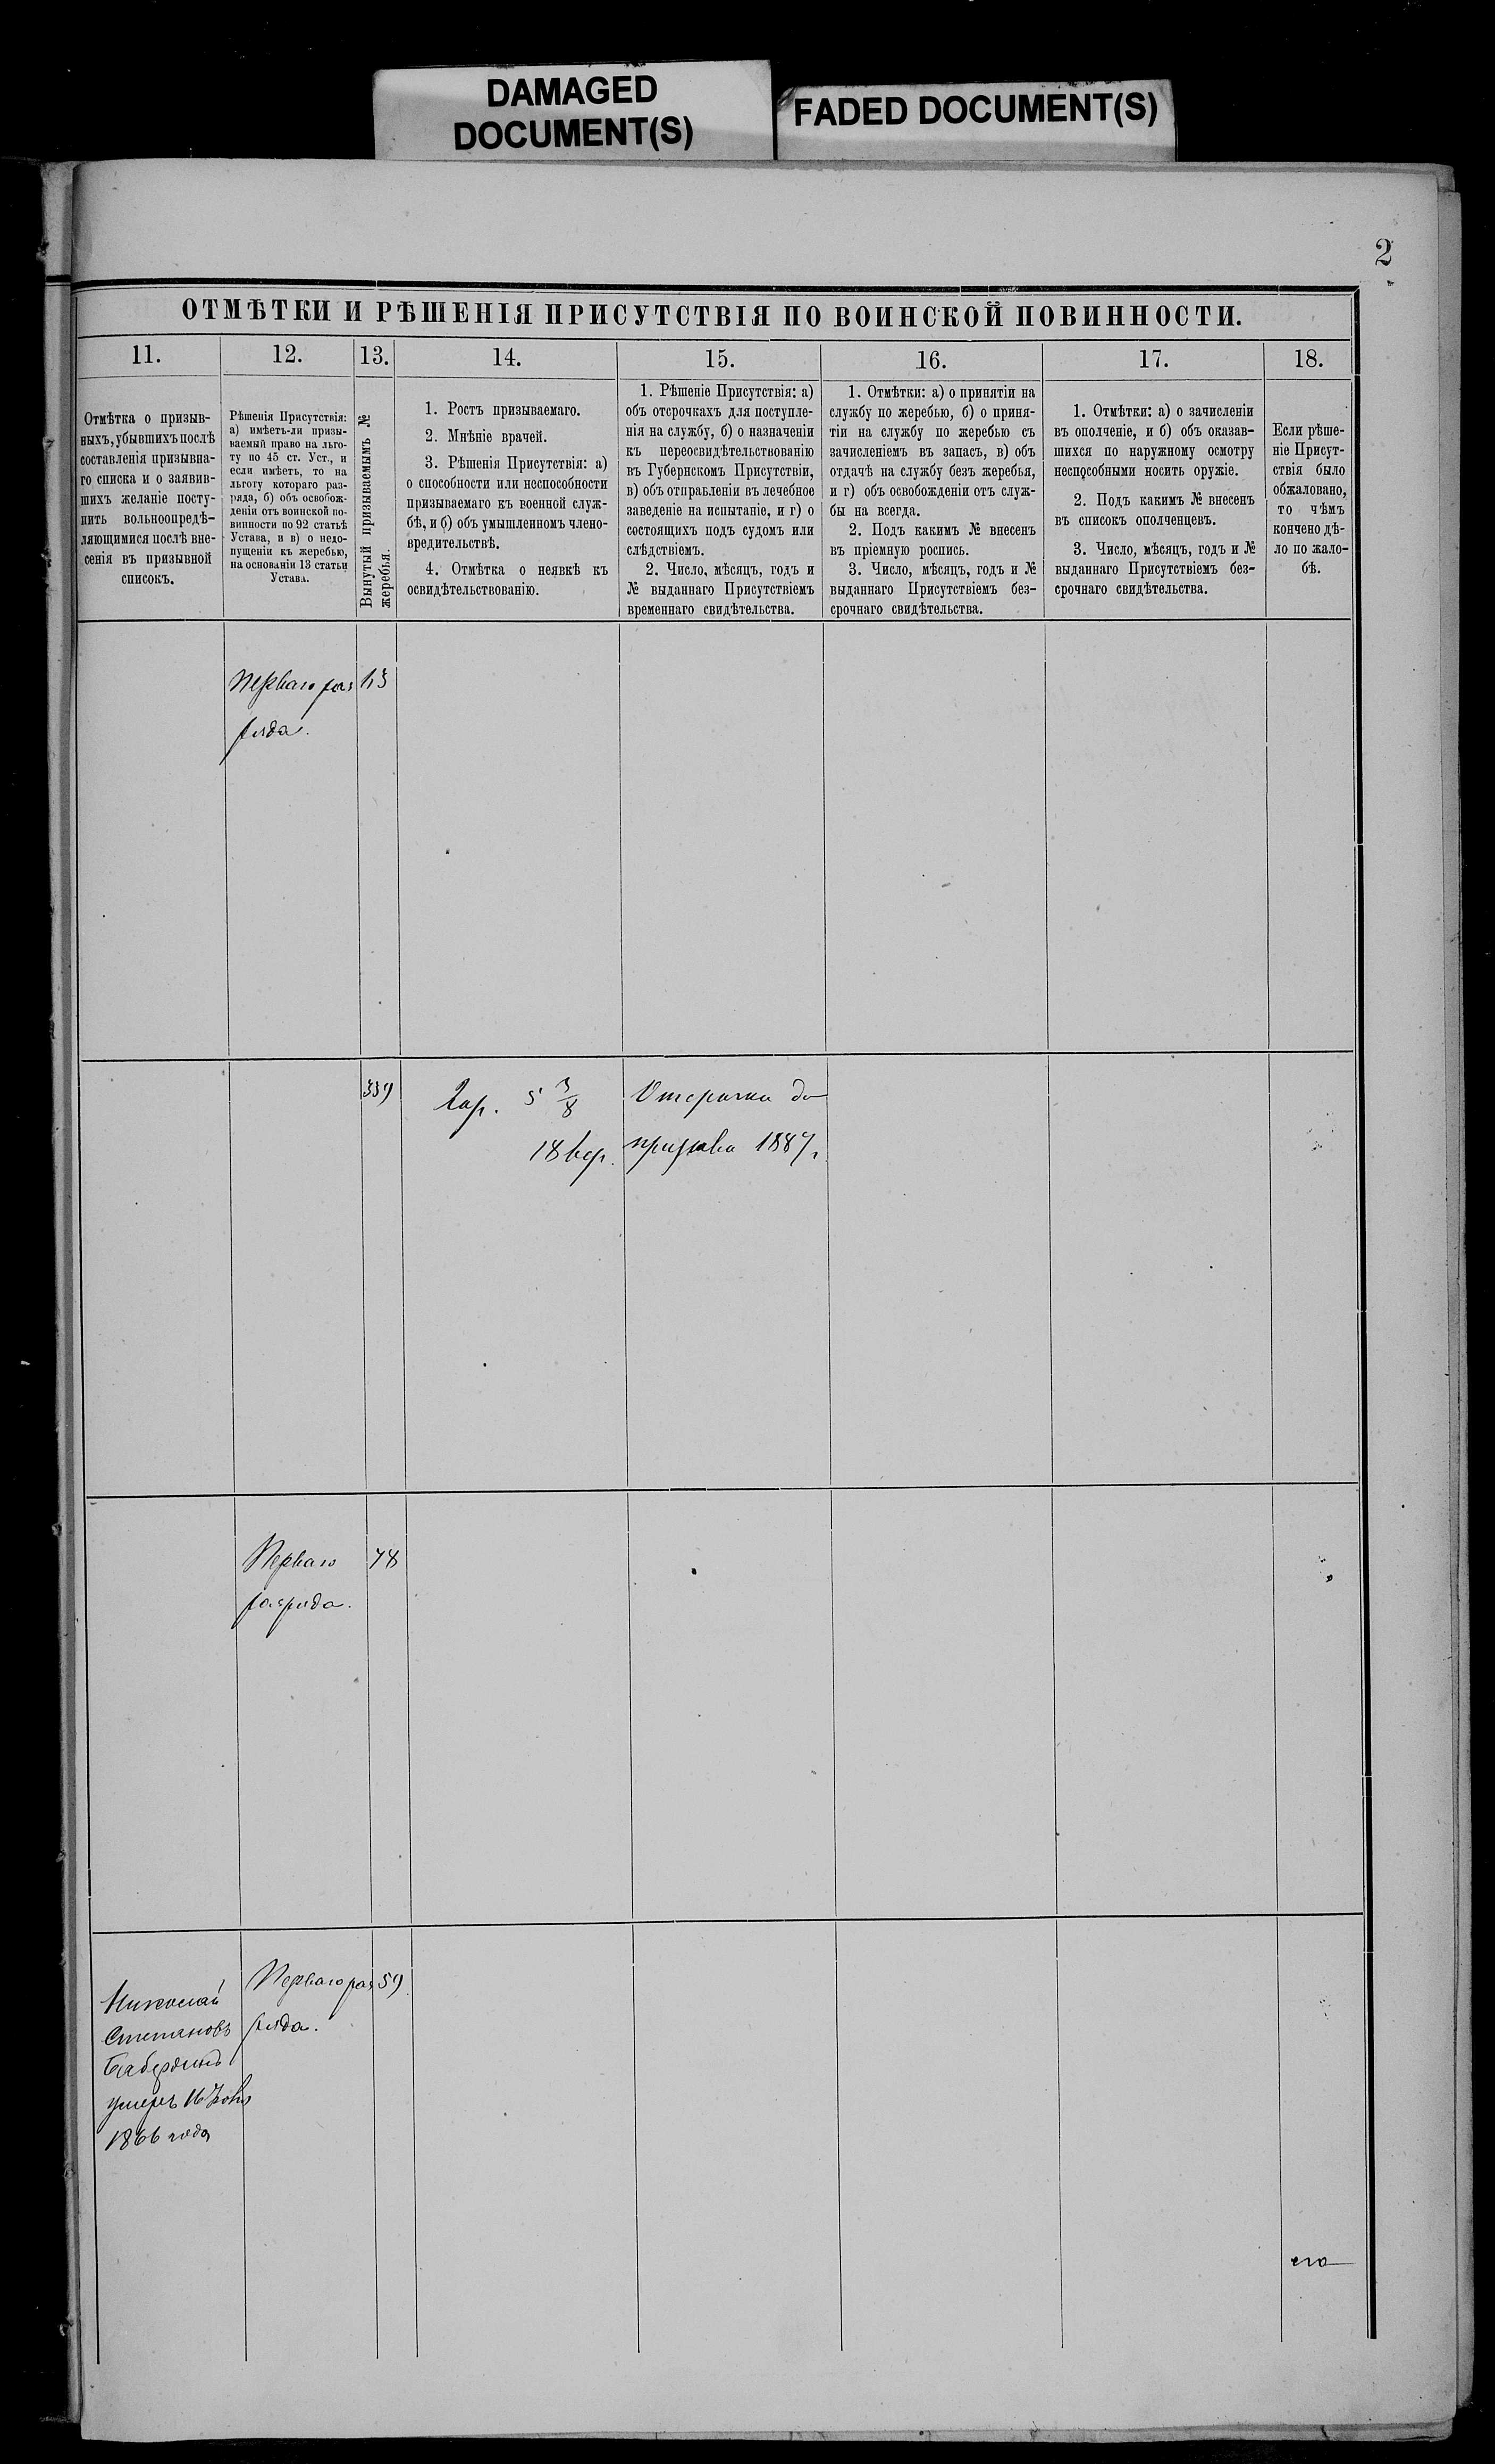 DAMAGED
DOCUMENT(S)
FADED DOCUMENT(S)
2
ОТМѢТКИ И РѢШЕНІЯ ПРИСУТСТВІЯ ПО ВОИНСКОЙ ПОВИННОСТИ.
11.
Отмѣтка о призыв-
ныхъ, убывшихъ послѣ
составленія призывна-
го списка и о заявив-
шихъ желаніе посту-
пить вольноопредѣ-
ляющимися послѣ вне-
сенія въ призывной
списокъ.
12.
Рѣшенія Присутствія:
а) имѣетъ-ли призы-
ваемый право на льго-
ту по 45 ст. Уст., и
если имѣетъ, то на
льготу котораго раз-
ряда, б) объ освобож-
деніи отъ воинской по-
винности по 92 статьѣ
Устава, и в) о недо-
пущеніи къ жеребью,
на основаніи 13 статьи
Устава.
13.
Вынутый призываемымъ №
жеребья.
14.
1. Ростъ призываемаго.
2. Мнѣніе врачей.
3. Рѣшенія Присутствія: а)
о способности или неспособности
призываемаго къ военной служ-
бѣ, и б) объ умышленномъ члено-
вредительствѣ.
4. Отмѣтка о неявкѣ къ
освидѣтельствованію.
15.
1. Рѣшеніе Присутствія: а)
объ отсрочкахъ для поступле-
нія на службу, б) о назначеніи
къ переосвидѣтельствованію
въ Губернскомъ Присутствіи,
в) объ отправленіи въ лечебное
заведеніе на испытаніе, и г) о
состоящихъ подъ судомъ или
слѣдствіемъ.
2. Число, мѣсяцъ, годъ и
№ выданнаго Присутствіемъ
временнаго свидѣтельства.
16.
1. Отмѣтки: а) о принятіи на
службу по жеребью, б) о приня-
тіи на службу по жеребью съ
зачисленіемъ въ запасъ, в) объ
отдачѣ на службу безъ жеребья,
и г) объ освобожденіи отъ служ-
бы на всегда.
2. Подъ какимъ № внесенъ
въ пріемную роспись.
3. Число, мѣсяцъ, годъ и №
выданнаго Присутствіемъ без-
срочнаго свидѣтельства.
17.
1. Отмѣтки: а) о зачисленіи
въ ополченіе, и б) объ оказав-
шихся по наружному осмотру
неспособными носить оружіе.
2. Подъ какимъ № внесенъ
въ списокъ ополченцевъ.
3. Число, мѣсяцъ, годъ и №
выданнаго Присутствіемъ без-
срочнаго свидѣтельства.
18.
Если рѣше-
ніе Присут-
ствія было
обжаловано,
то чѣмъ
кончено дѣ-
ло по жало-
бѣ.
Перваго раз
ряда.
339
5 3/8
Отсрочка до
18 вер.
призыва 1887г.
Перваго
78
разряда.
Николай
Степановъ
умеръ 16
1866 года
Перваго раз
59
ряда.